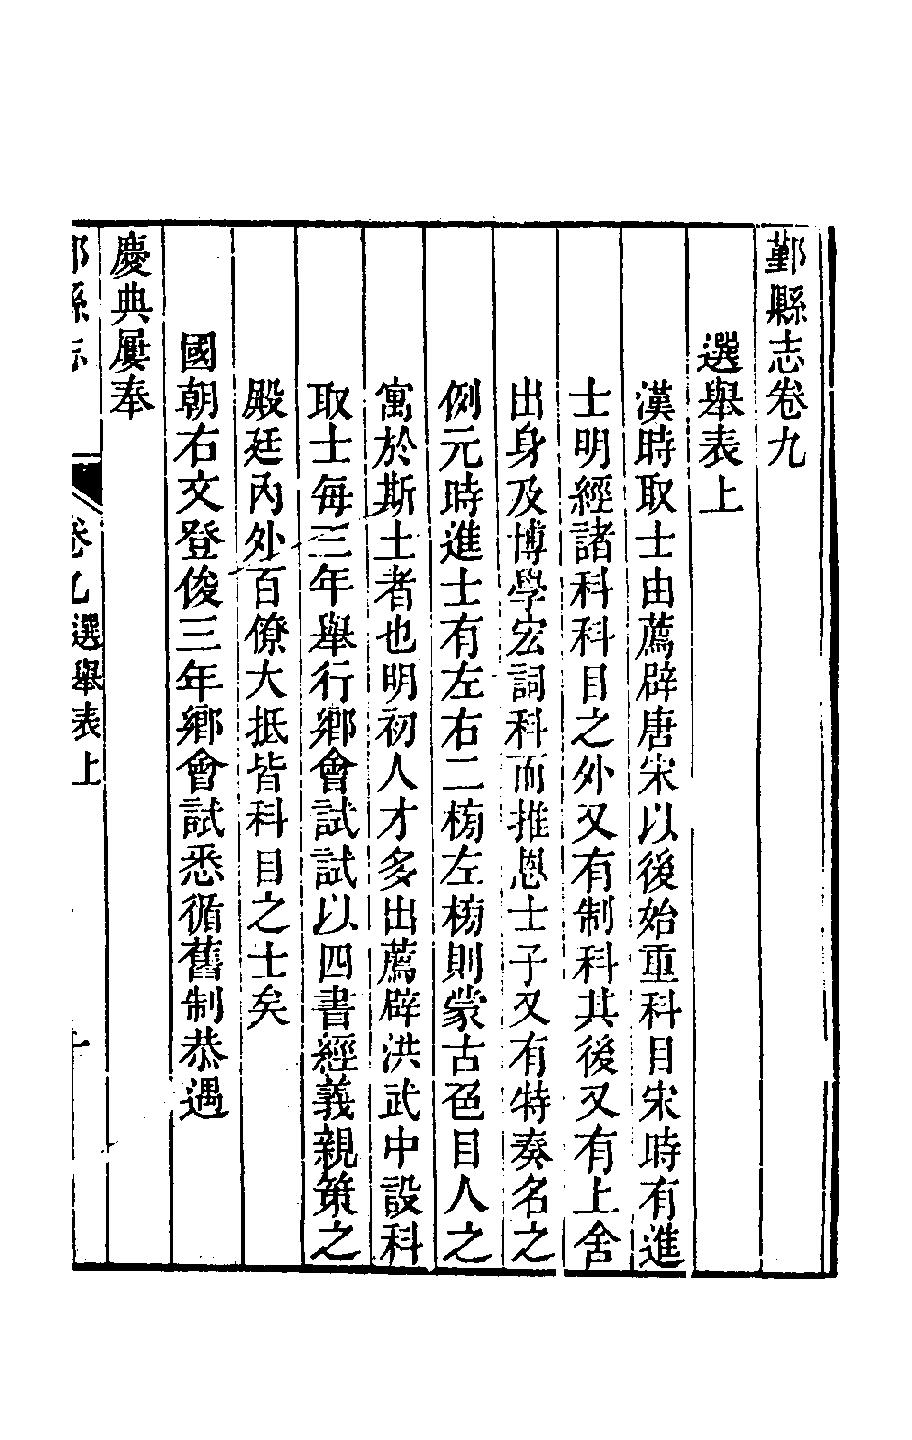 鄞縣志卷九
選舉表上
漢時取士由薦辟唐宋以後始重科目宋時有進
士明經諸科科目之外又有制科其後又有上舍
出身及博學宏詞科而推恩士子又有特奏名之
例元時進士有左右二榜左榜則蒙古色目人之
寓於斯土者也明初人才多出薦辟洪武中設科
取士每三年舉行鄉會試試以四書經義親策之
殿廷內外百僚大抵皆科目之士矣
國朝右文登俊三年鄉會試悉循舊制恭遇
慶典屢奉
鄞縣志 卷九選舉表上 一